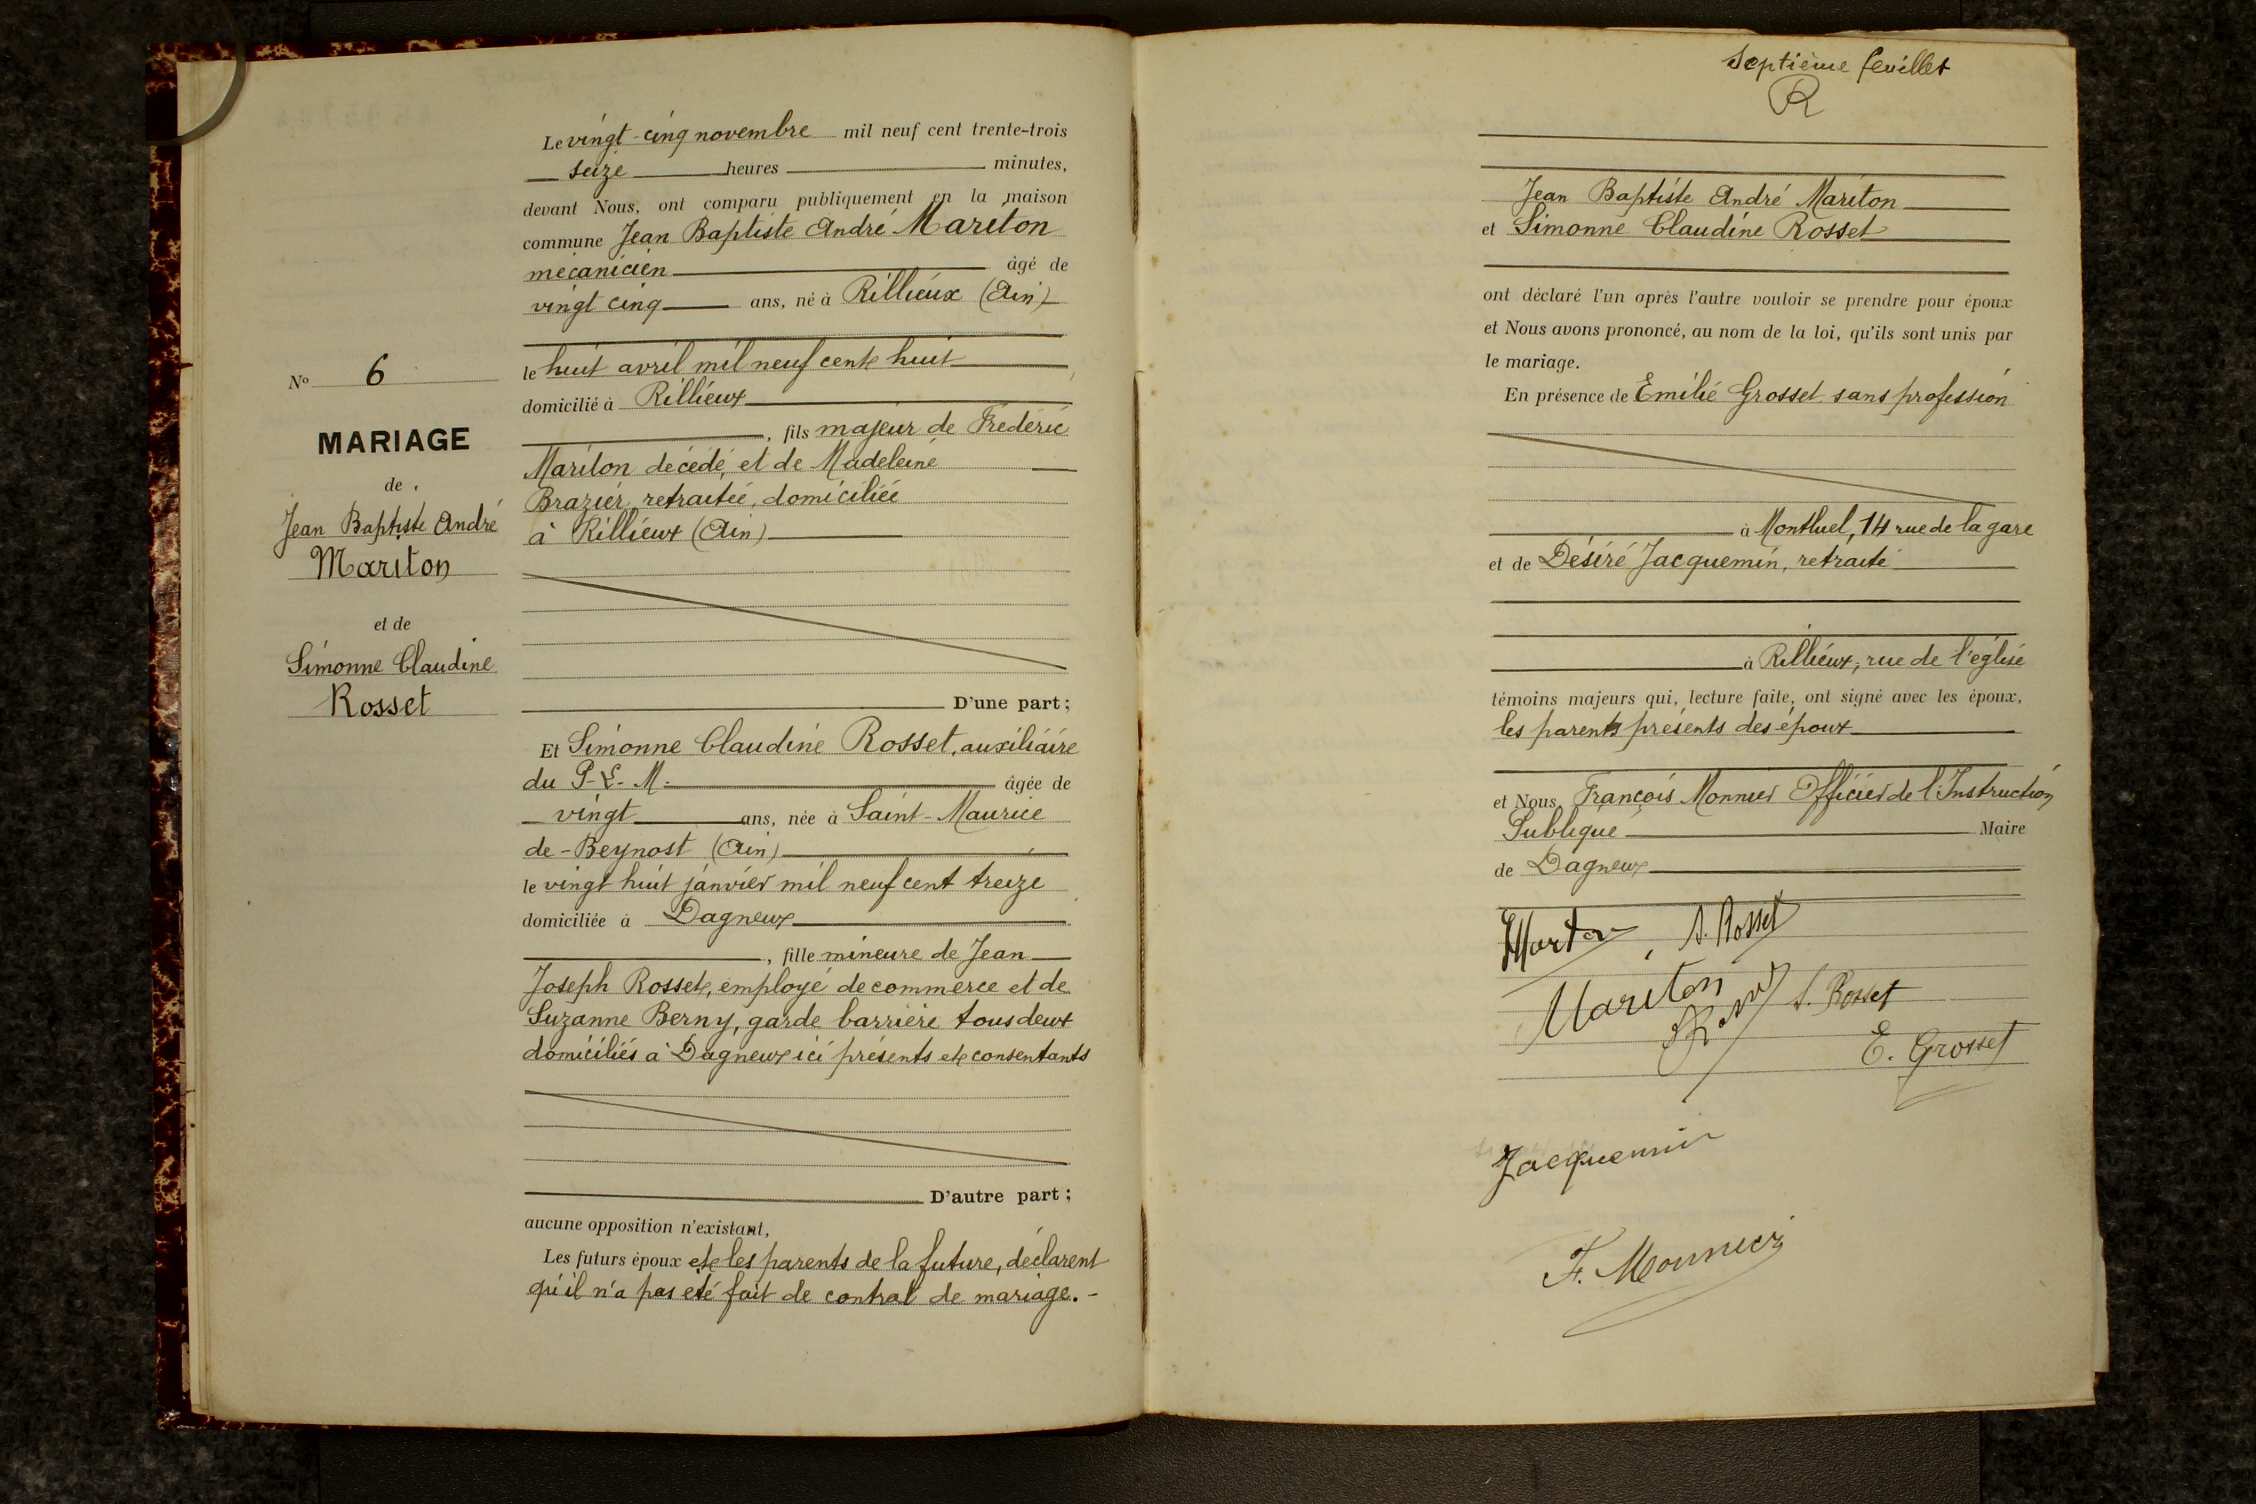 Nº 6
MARIAGE
de
Jean Baptiste André
Mariton
et de
Simonne Claudine
Rosset
Le vingt-cinq novembre mil neuf cent trente-trois
seize heures minutes,
devant Nous, ont comparu publiquement en la maison
commune Jean Baptiste André Mariton
mécanicien âgé de
vingt cinq ans, né à Rillieux (Ain)
le huit avril mil neuf cent huit
domicilié à Rillieux
, fils majeur de Frédéric
Mariton décédé, et de Madeleine
Brazier, retraitée, domiciliée
à Rillieux (Ain)
D'une part ;
Et Simonne Claudine Rosset, auxiliaire
du P-L-M. âgée de
vingt ans, née à Saint-Maurice
de-Beynost (Ain)
le vingt huit janvier mil neuf cent treize
domiciliée à Dagneux
, fille mineure de Jean
Joseph Rosset, employé de commerce et de
Suzanne Berny, garde barrière tous deux
domiciliés à Dagneux ici présents et consentants
D'autre part ;
aucune opposition n'existant,
Les futurs époux et les parents de la future, déclarent
qu'il n'a pas été fait de contrat de mariage. -
Septième feuillet
R
Jean Baptiste André Mariton
et Simonne Claudine Rosset
ont déclaré l'un après l'autre vouloir se prendre pour époux
et Nous avons prononcé, au nom de la loi, qu'ils sont unis par
le mariage.
En présence de Emilie Grosset sans profession
à Montluel, 14 rue de la gare
et de Désiré Jacquemin, retraité
à Rillieux, rue de l'église
témoins majeurs qui, lecture faite, ont signé avec les époux,
les parents présents des époux
et Nous François Monnier Officier de l'Instruction
Publique Maire
de Dagneux
S. Rosset
Mariton
S. Rosset
E. Grosset
Jacquemin
F. Monnier